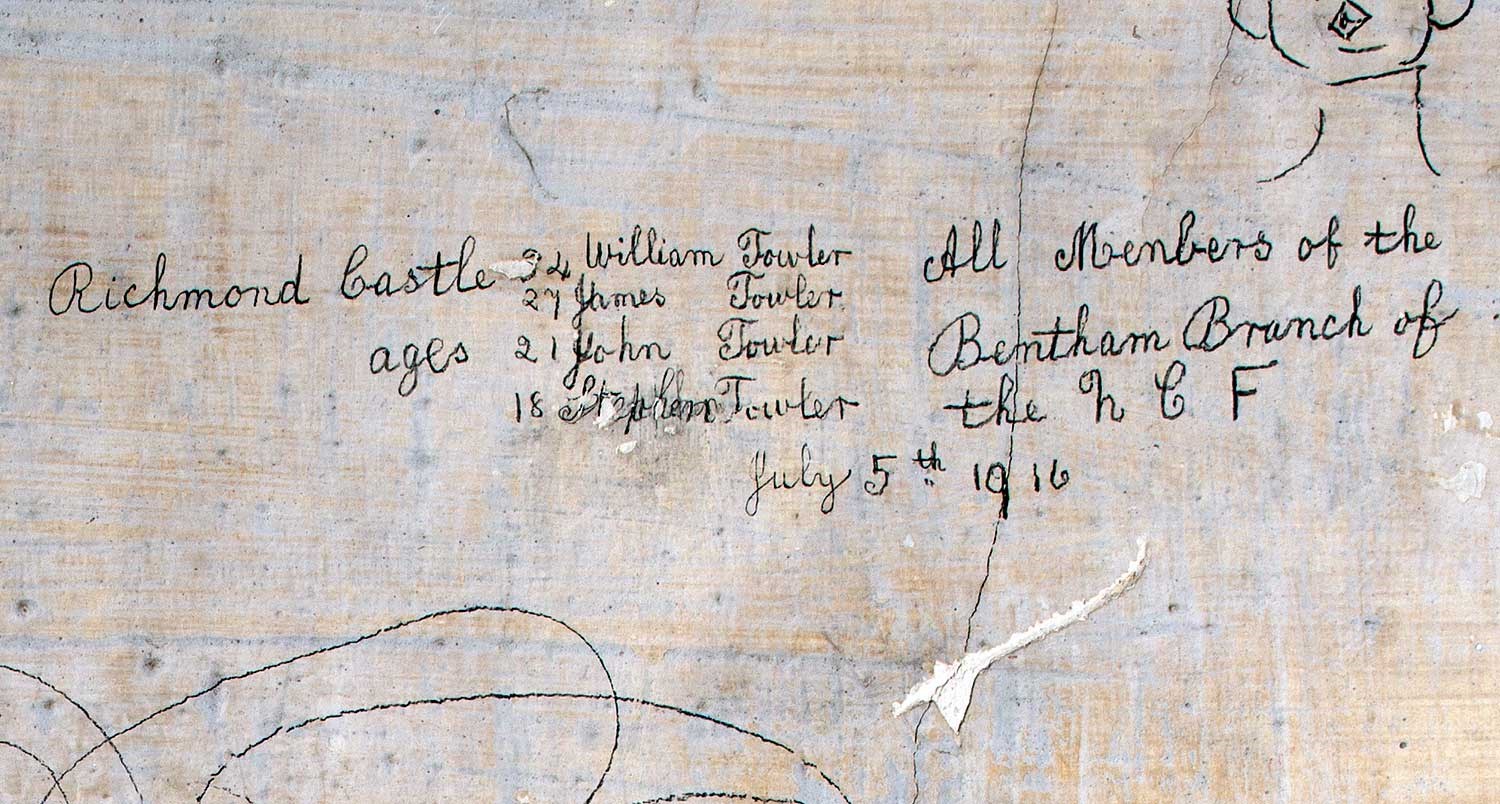 Richmond Castle 34 William Towler All Menbers of the
27 James Towler
ages 21 John Towler Bentham Branch of
18 Stephen Towler the N C F
July 5th 1916